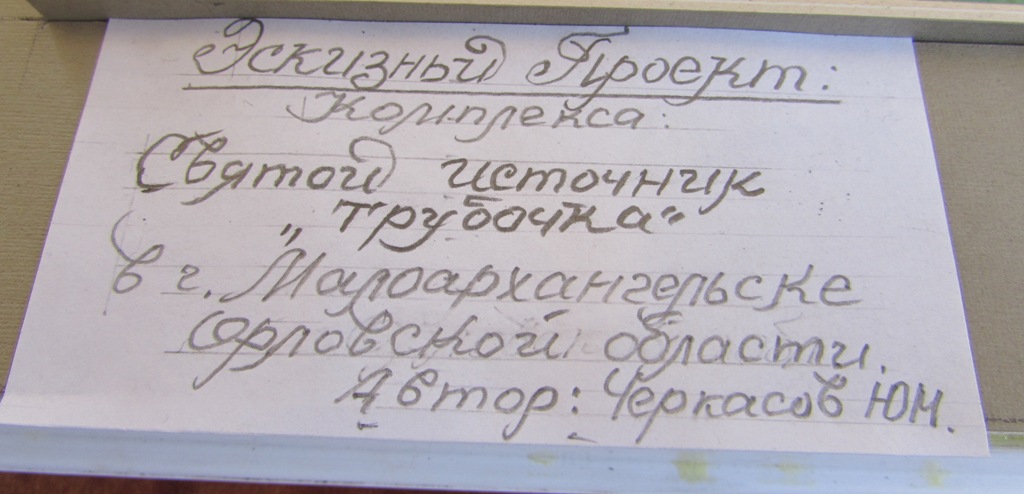 Эскизный Проект:
Комплекса:
Святой источник
„трубочка"
в г. Малоархангельске
Орловской области.
Автор: Черкасов ЮН.